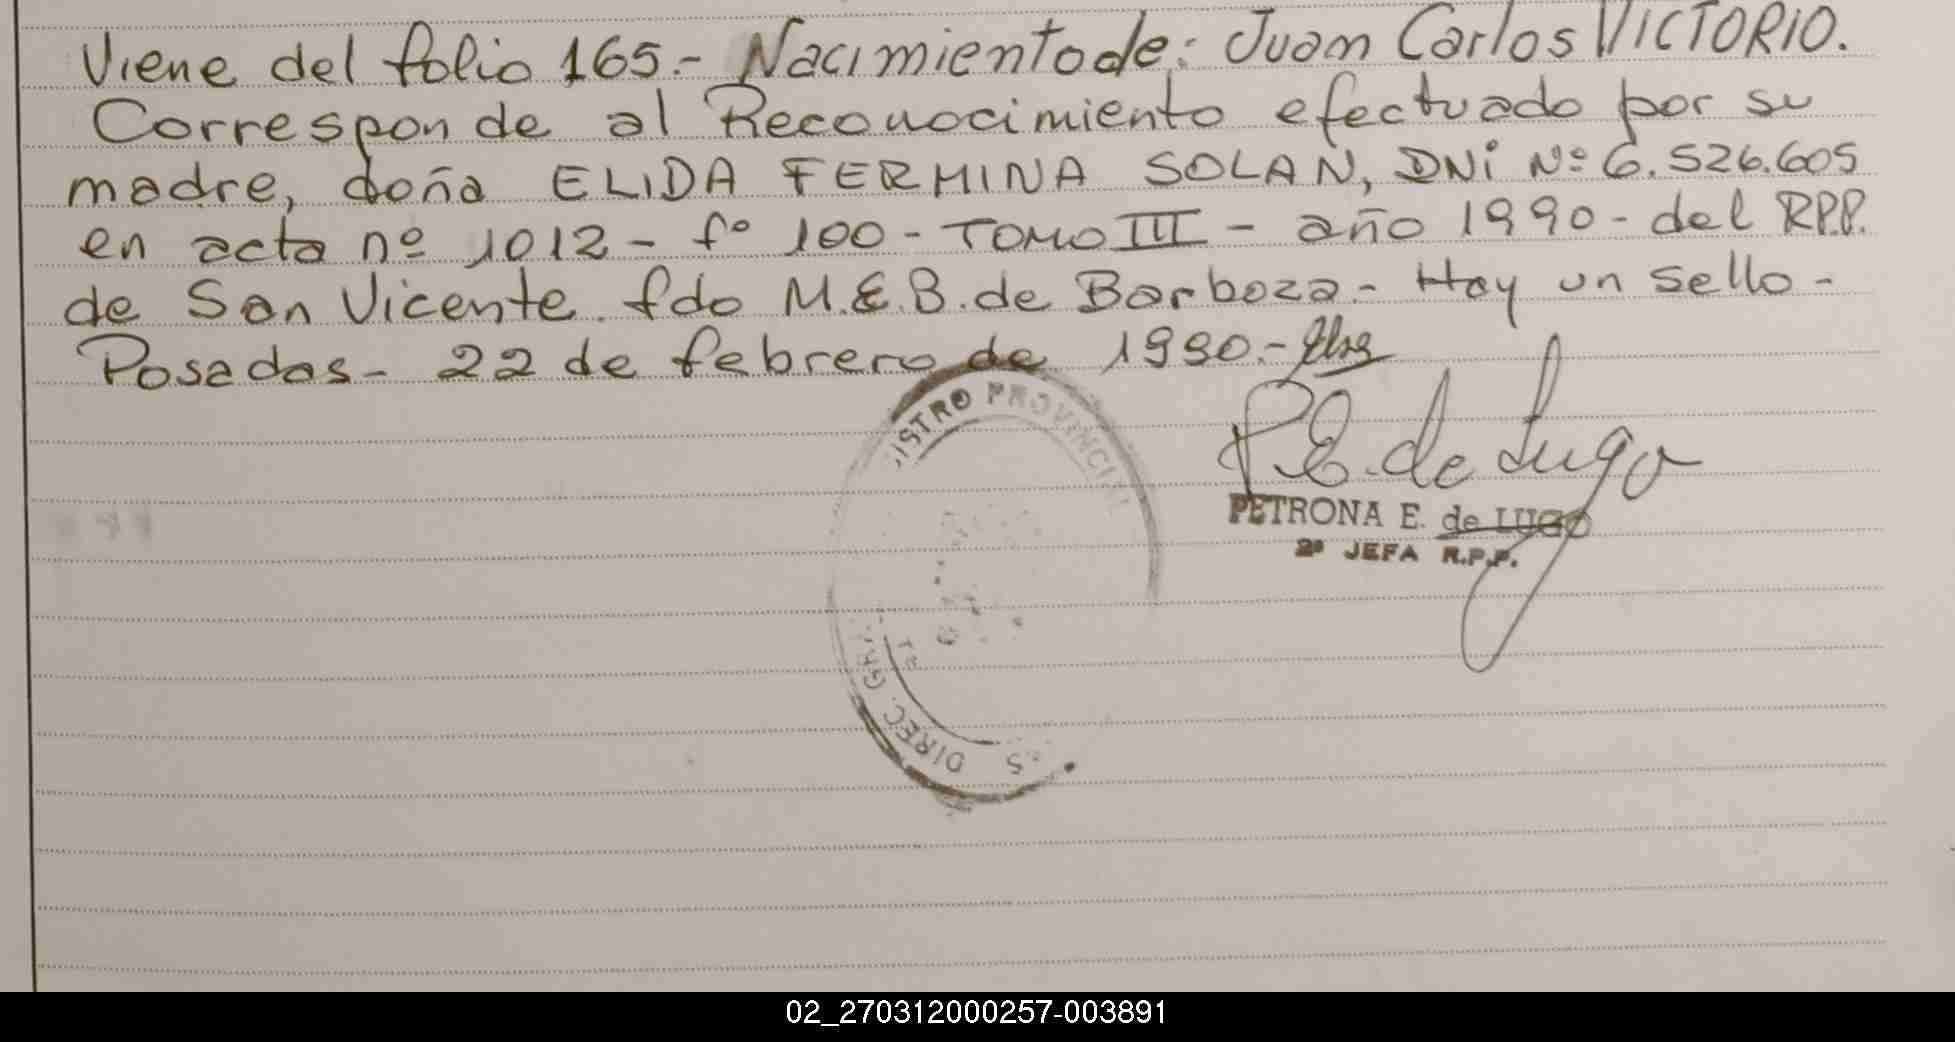 Viene del folio 165.- Nacimiento de: Juan Carlos VICTORIO.
Corresponde al Reconocimiento efectuado por su
madre, doña ELIDA FERMINA SOLAN, DNI Nº 6.526.605
en acta nº 1012 - fº 100 - TOMO III - año 1990 - del RP.P.
de San Vicente. fdo M.E.B. de Barboza.- Hay un sello -
Posadas - 22 de febrero de 1990.-
P.E. de Lugo
PETRONA E. de LUGO
2ª JEFA R.P.P.
ISTRO PROVINCIAL
DIREC. GRAL
02_270312000257-003891